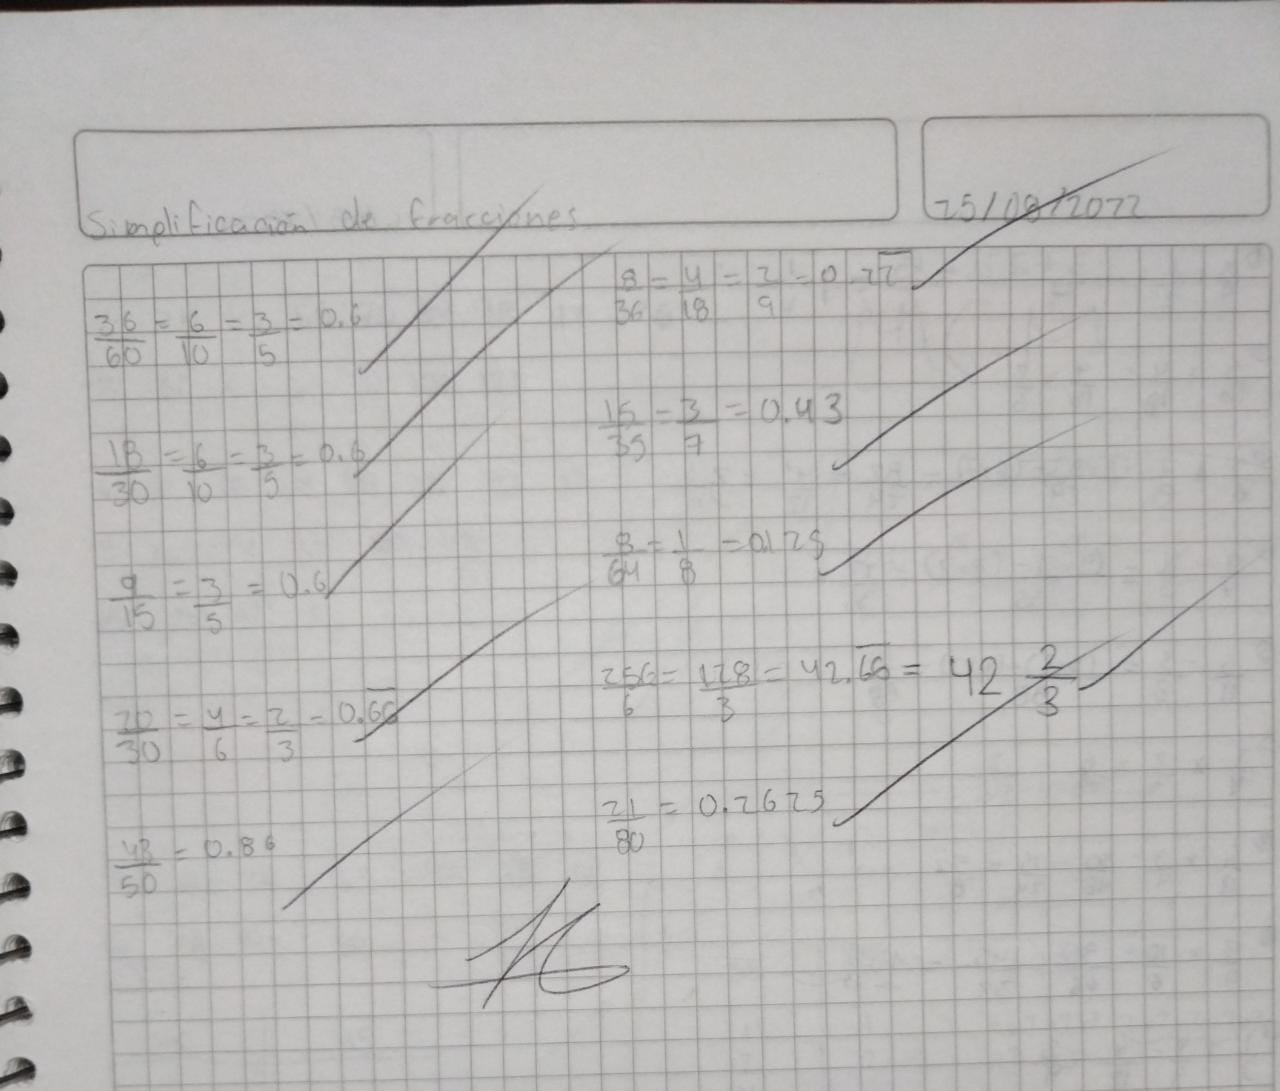 Simplificación de fracciones
25/08/2022
36/60 = 6/10 = 3/5 = 0.6
18/30 = 6/10 = 3/5 = 0.6
9/15 = 3/5 = 0.6
20/30 = 4/6 = 2/3 = 0.6̅6̅
43/50 = 0.86
8/36 = 4/18 = 2/9 = 0.2̅2̅
15/35 = 3/7 = 0.43
8/64 = 1/8 = 0.125
256/6 = 128/3 = 42.6̅6̅ = 42 2/3
21/80 = 0.2625